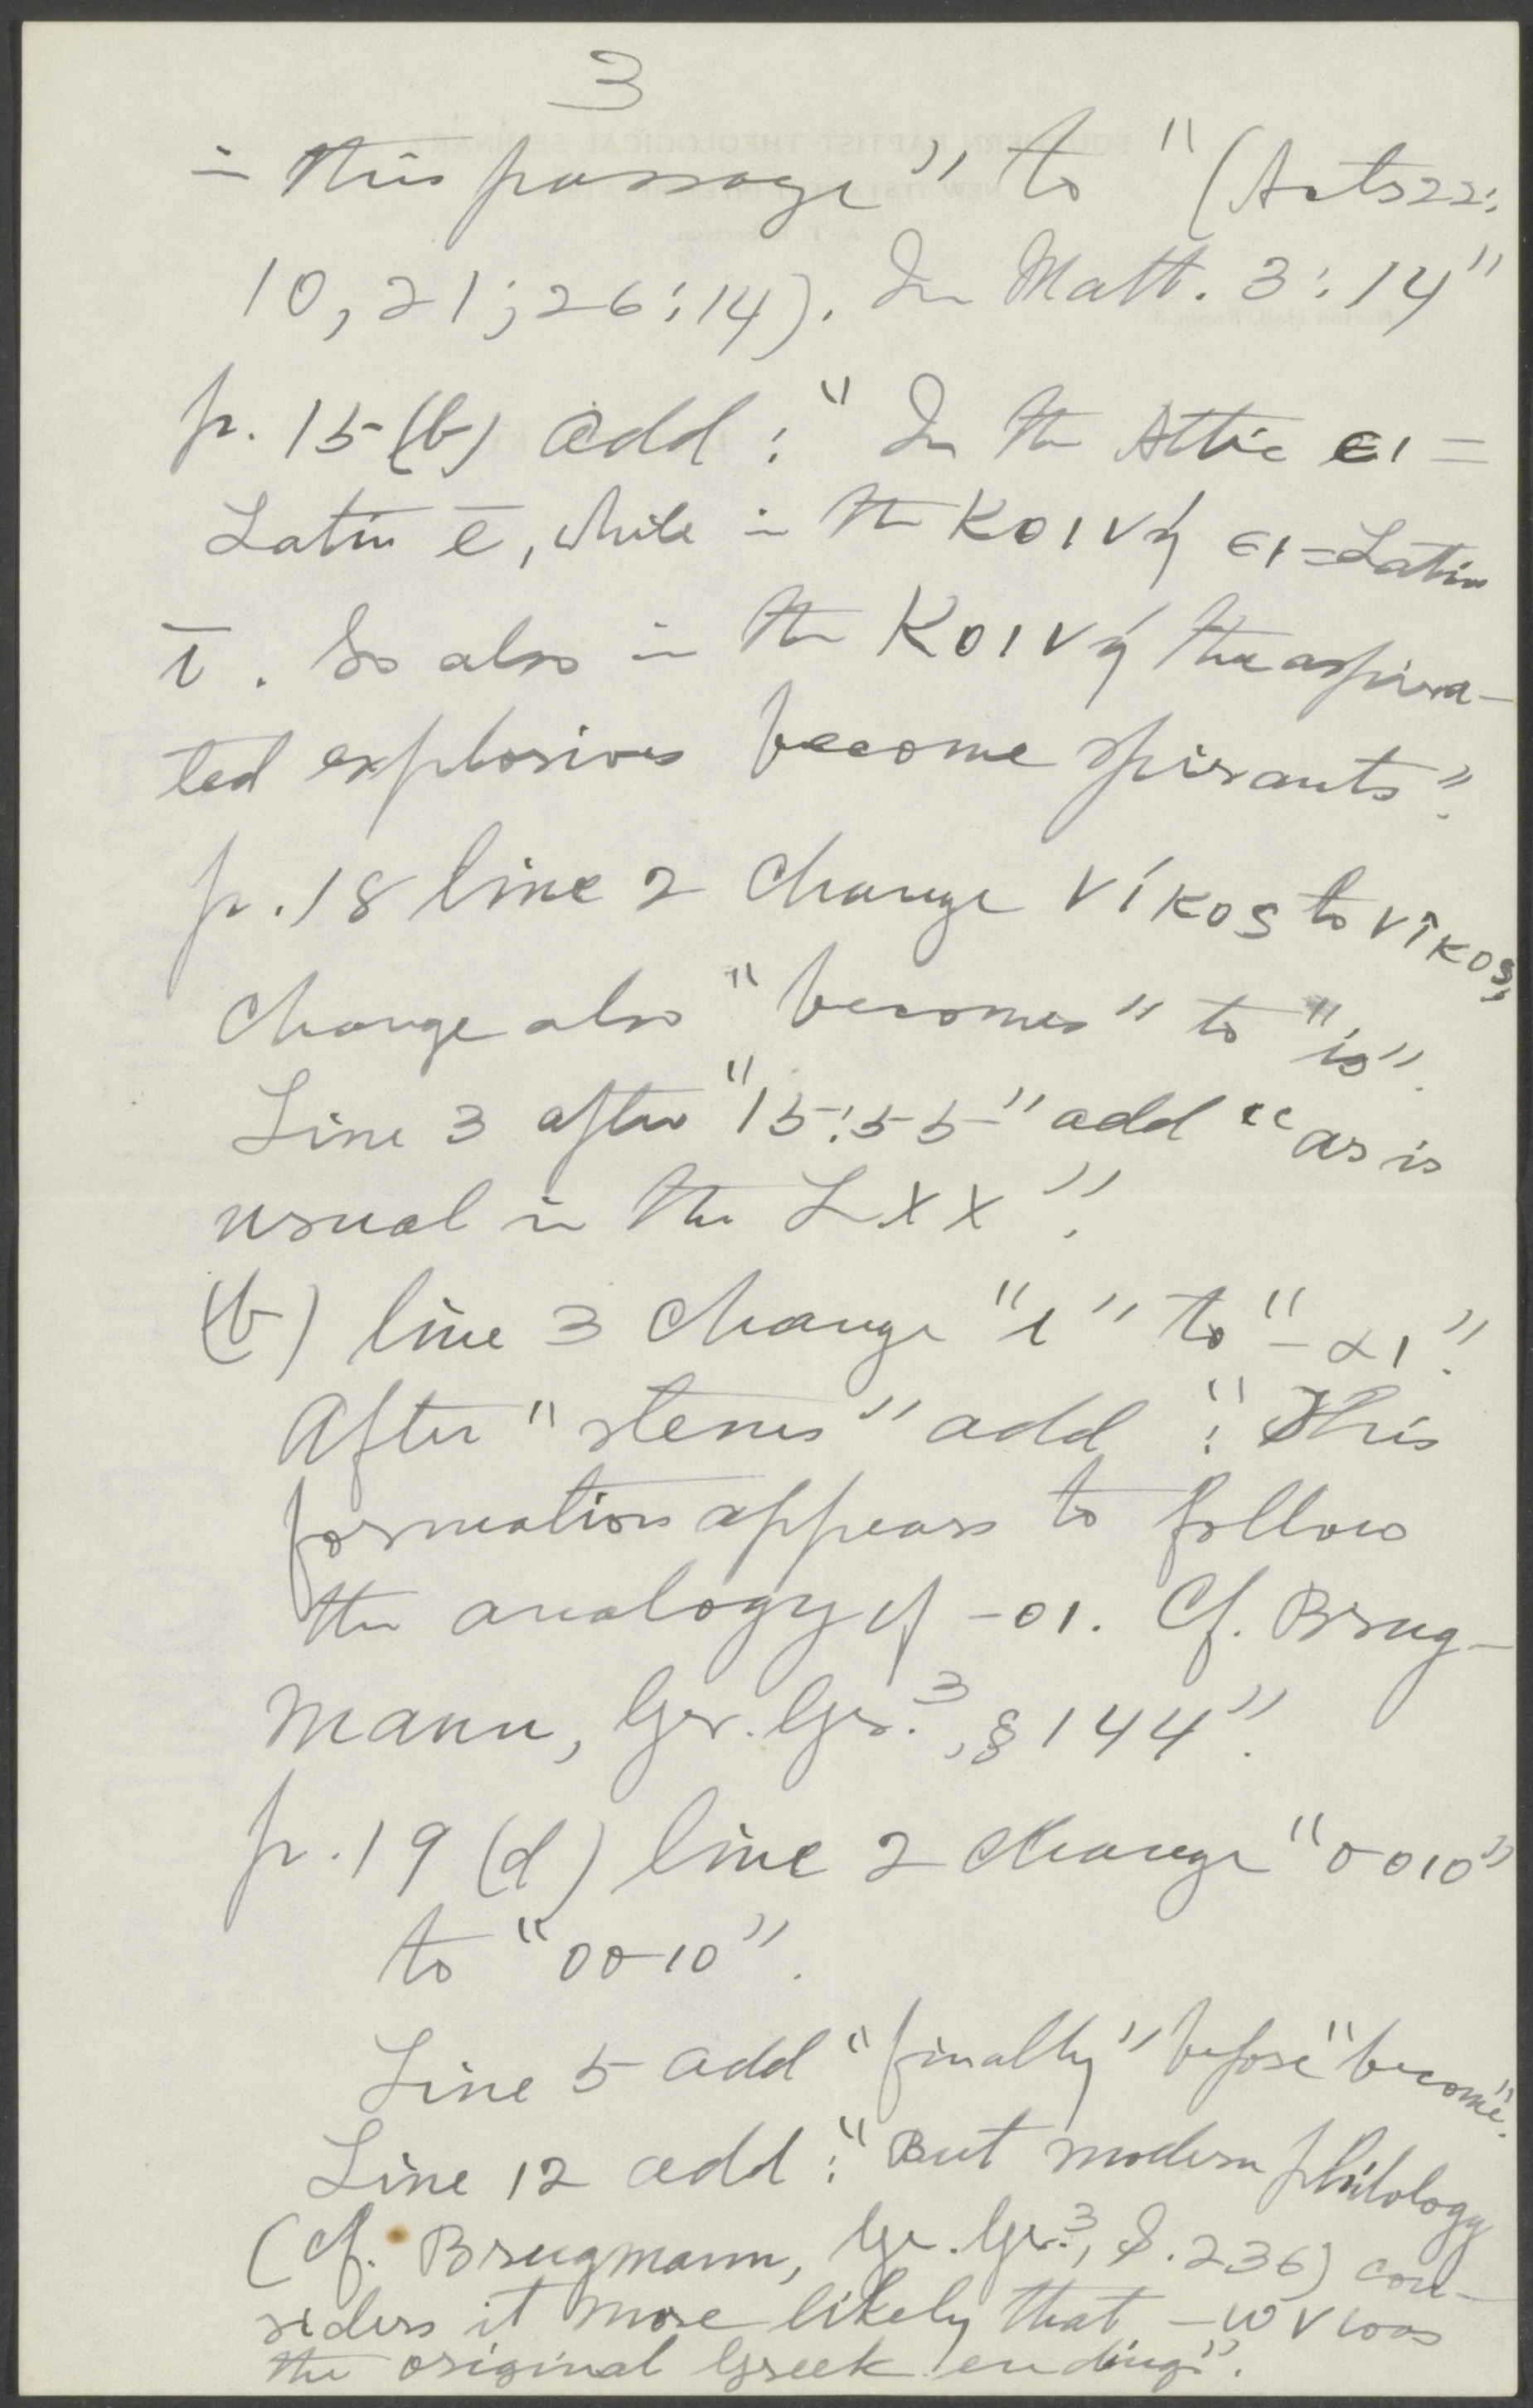 3
in this passage" to "(Acts 22:
10, 21; 26:14). In Matt. 3:14"
p. 15 (b) add: "In the Attic ει =
Latin ē, while in the κοινή ει = Latin
ī. So also in the κοινή the aspira-
ted explosives become spirants".
p. 18 line 2 change νίκος to νῖκος,
change also "becomes" to "is".
Line 3 after "15:55" add "as is
usual in the LXX".
(b) line 3 change "ι" to "-αι".
After "stems" add: "This
formation appears to follow
the analogy of -οι. Cf. Brug-
mann, Gr. Gr.³, § 144".
p. 19 (d) line 2 change "σοιο"
to "οσιο".
Line 5 add "finally" before "become".
Line 12 add: "But modern philology
(cf. Brugmann, Gr. Gr.³, S. 236) con-
siders it more likely that -ων was
the original Greek ending".